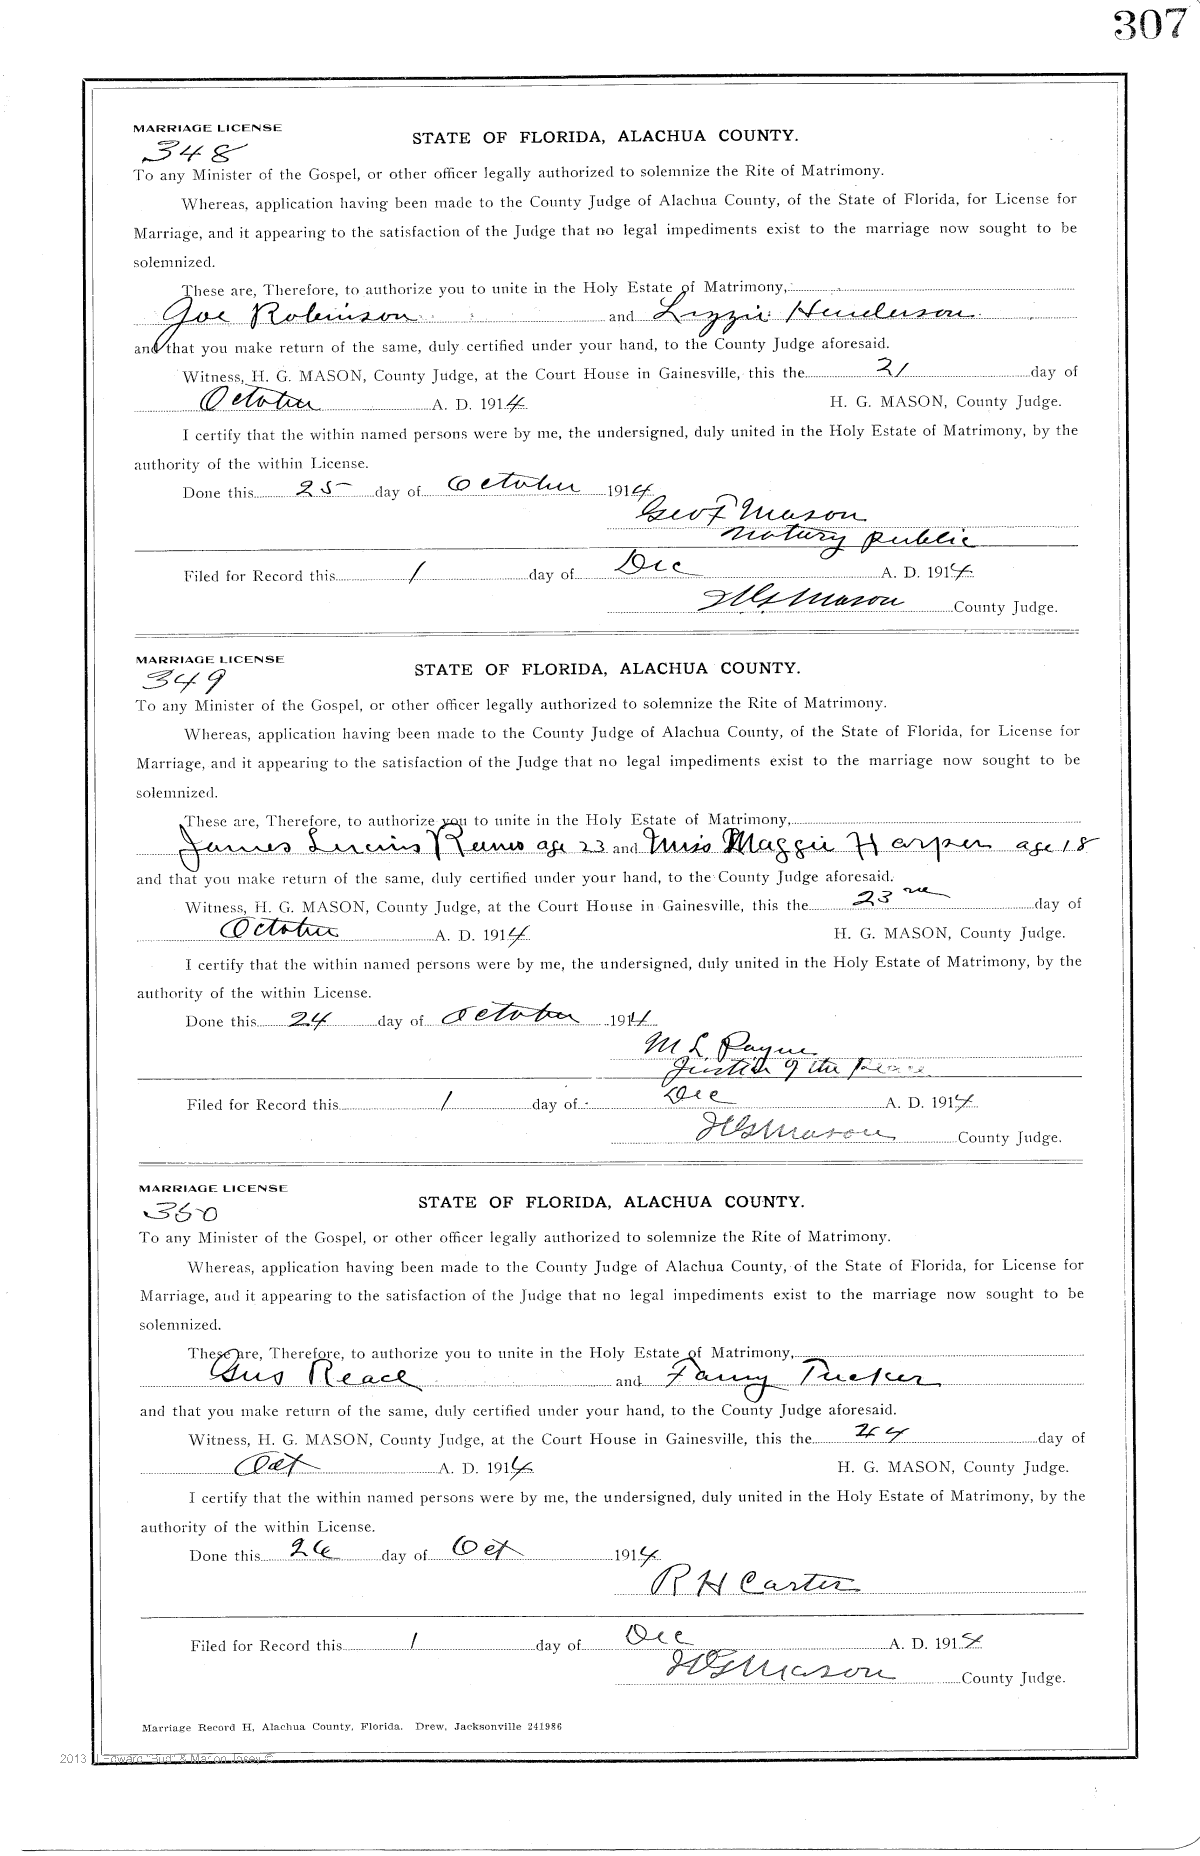 307
MARRIAGE LICENSE
STATE OF FLORIDA, ALACHUA COUNTY.
348
To any Minister of the Gospel, or other officer legally authorized to solemnize the Rite of Matrimony.
Whereas, application having been made to the County Judge of Alachua County, of the State of Florida, for License for
Marriage, and it appearing to the satisfaction of the Judge that no legal impediments exist to the marriage now sought to be
solemnized.
These are, Therefore, to authorize you to unite in the Holy Estate of Matrimony,
Joe Robinson and Lizzie Henderson
and that you make return of the same, duly certified under your hand, to the County Judge aforesaid.
Witness, H. G. MASON, County Judge, at the Court House in Gainesville, this the 21 day of
October A. D. 1914 H. G. MASON, County Judge.
I certify that the within named persons were by me, the undersigned, duly united in the Holy Estate of Matrimony, by the
authority of the within License.
Done this 25 day of October 1914
Geo F Mason
Notary Public
Filed for Record this 1 day of Dec A. D. 1914
H G Mason County Judge.
MARRIAGE LICENSE
STATE OF FLORIDA, ALACHUA COUNTY.
349
To any Minister of the Gospel, or other officer legally authorized to solemnize the Rite of Matrimony.
Whereas, application having been made to the County Judge of Alachua County, of the State of Florida, for License for
Marriage, and it appearing to the satisfaction of the Judge that no legal impediments exist to the marriage now sought to be
solemnized.
These are, Therefore, to authorize you to unite in the Holy Estate of Matrimony,
James Lucius age 23 and Miss Maggie Harper age 18
and that you make return of the same, duly certified under your hand, to the County Judge aforesaid.
Witness, H. G. MASON, County Judge, at the Court House in Gainesville, this the 23 day of
October A. D. 1914 H. G. MASON, County Judge.
I certify that the within named persons were by me, the undersigned, duly united in the Holy Estate of Matrimony, by the
authority of the within License.
Done this 24 day of October 1914
M L Payne
Justice of the Peace
Filed for Record this 1 day of Dec A. D. 1914
H G Mason County Judge.
MARRIAGE LICENSE
STATE OF FLORIDA, ALACHUA COUNTY.
350
To any Minister of the Gospel, or other officer legally authorized to solemnize the Rite of Matrimony.
Whereas, application having been made to the County Judge of Alachua County, of the State of Florida, for License for
Marriage, and it appearing to the satisfaction of the Judge that no legal impediments exist to the marriage now sought to be
solemnized.
These are, Therefore, to authorize you to unite in the Holy Estate of Matrimony,
Gus and Fanny Tucker
and that you make return of the same, duly certified under your hand, to the County Judge aforesaid.
Witness, H. G. MASON, County Judge, at the Court House in Gainesville, this the 24 day of
Oct A. D. 1914 H. G. MASON, County Judge.
I certify that the within named persons were by me, the undersigned, duly united in the Holy Estate of Matrimony, by the
authority of the within License.
Done this 26 day of Oct 1914
R H Carter
Filed for Record this 1 day of Dec A. D. 1914
H G Mason County Judge.
Marriage Record H, Alachua County, Florida. Drew, Jacksonville 241986
2013 J Edward "Bud" & Marion Josey ©